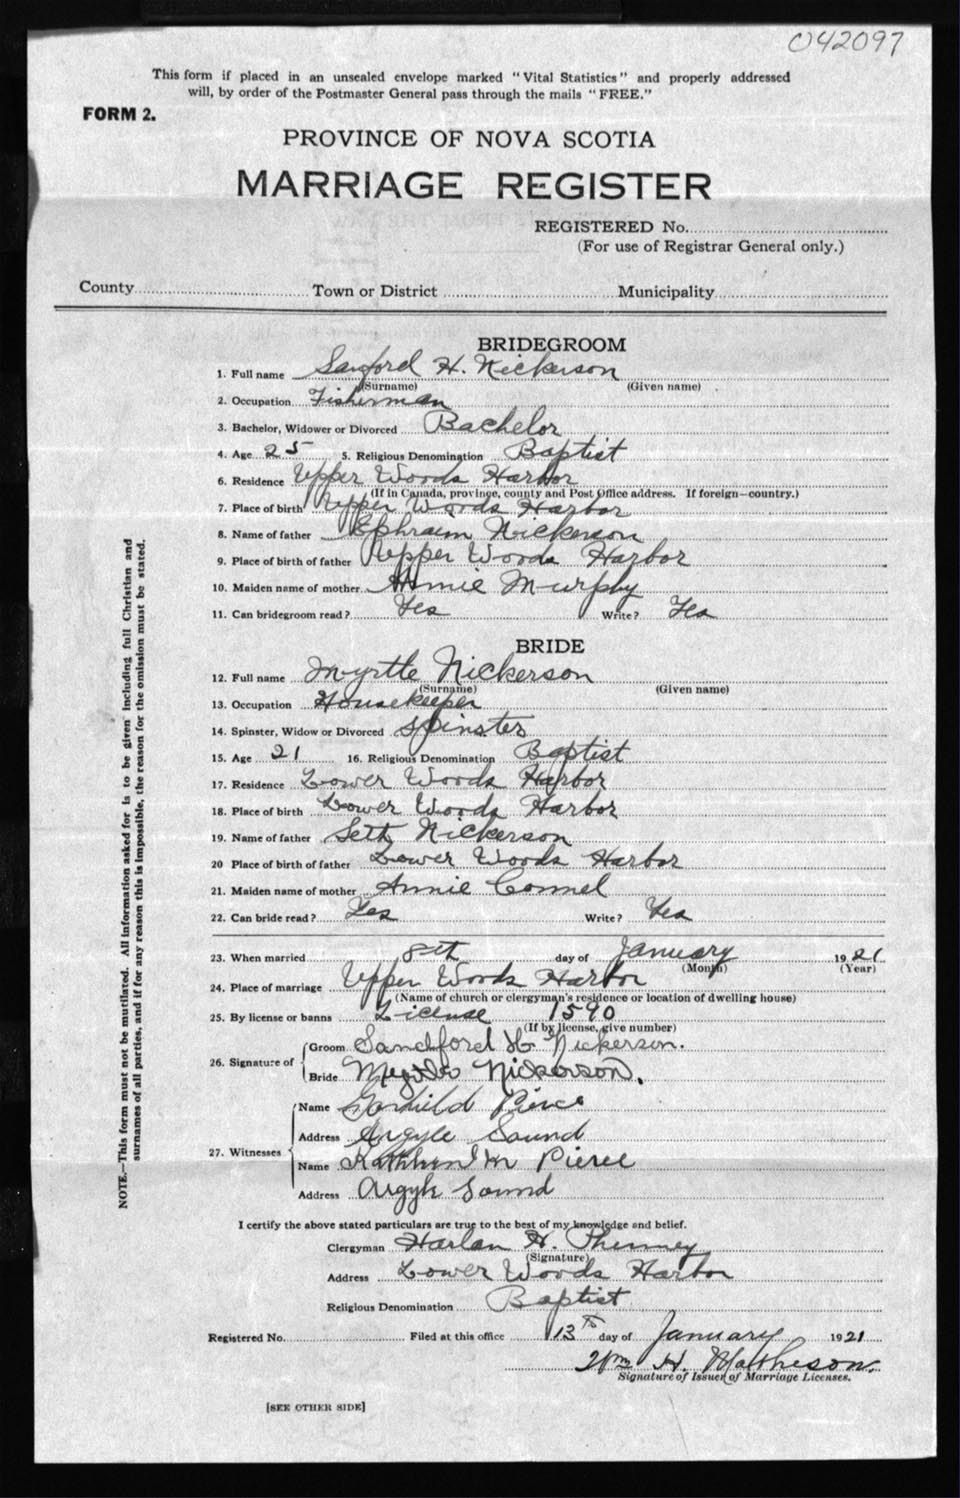 042097
This form if placed in an unsealed envelope marked "Vital Statistics" and properly addressed
will, by order of the Postmaster General pass through the mails "FREE."
FORM 2.
PROVINCE OF NOVA SCOTIA
MARRIAGE REGISTER
REGISTERED No.
(For use of Registrar General only.)
County Town or District Municipality
BRIDEGROOM
1. Full name Sanford H. Nickerson
(Surname) (Given name)
2. Occupation Fisherman
3. Bachelor, Widower or Divorced Bachelor
4. Age 25 5. Religious Denomination Baptist
6. Residence Upper Woods Harbor
(If in Canada, province, county and Post Office address. If foreign—country.)
7. Place of birth Upper Woods Harbor
8. Name of father Ephraim Nickerson
9. Place of birth of father Upper Woods Harbor
10. Maiden name of mother Annie Murphy
11. Can bridegroom read? Yes Write? Yes
BRIDE
12. Full name Myrtle Nickerson
(Surname) (Given name)
13. Occupation Housekeeper
14. Spinster, Widow or Divorced Spinster
15. Age 21 16. Religious Denomination Baptist
17. Residence Lower Woods Harbor
18. Place of birth Lower Woods Harbor
19. Name of father Seth Nickerson
20 Place of birth of father Lower Woods Harbor
21. Maiden name of mother Annie Connel
22. Can bride read? Yes Write? Yes
23. When married 8th day of January 1921
(Month) (Year)
24. Place of marriage Upper Woods Harbor
(Name of church or clergyman's residence or location of dwelling house)
25. By license or banns License 1590
(If by license, give number)
26. Signature of
Groom Sandford H Nickerson.
Bride Nickerson.
27. Witnesses
Name Garfield Pierce
Address Argyle Sound
Name Kathleen M Pierce
Address Argyle Sound
I certify the above stated particulars are true to the best of my knowledge and belief.
Clergyman Harlan H. Phenney
(Signature)
Address Lower Woods Harbor
Religious Denomination Baptist
Registered No. Filed at this office 13th day of January 1921
Wm H. Matheson.
Signature of Issuer of Marriage Licenses.
[SEE OTHER SIDE]
NOTE.—This form must not be mutilated. All information asked for is to be given including full Christian and
surnames of all parties, and if for any reason this is impossible, the reason for the omission must be stated.